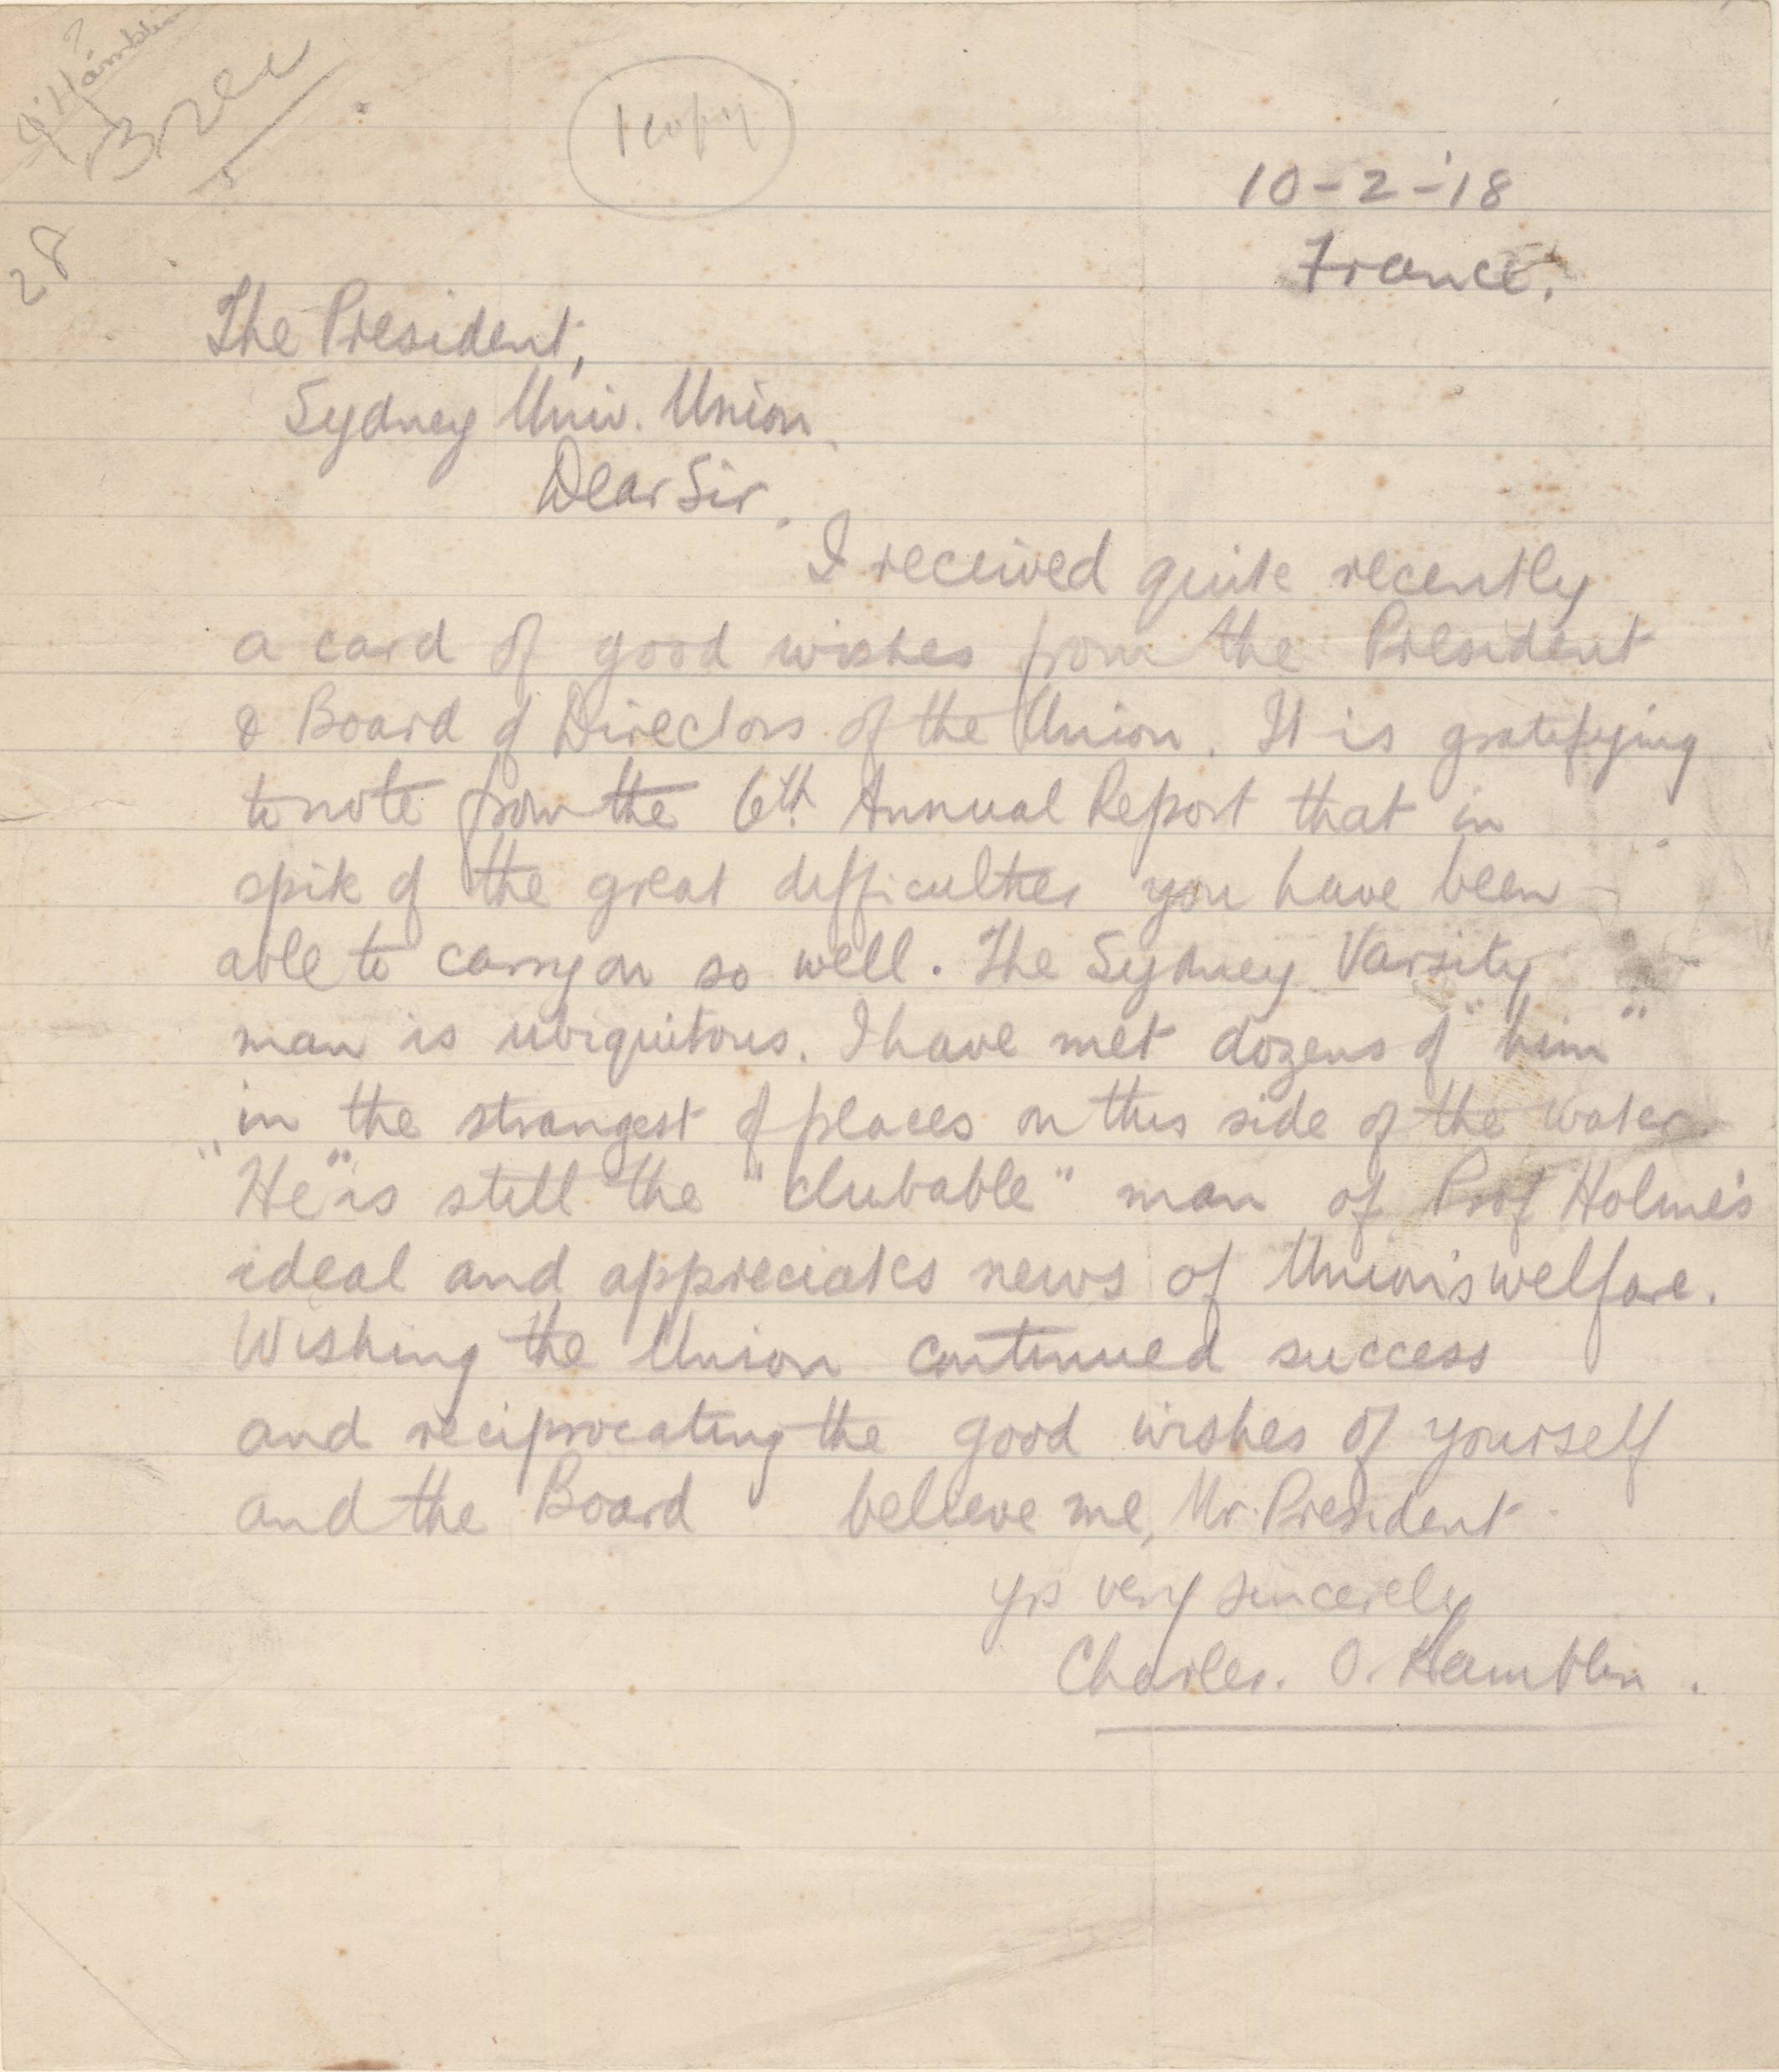 Hamblin
1 copy
10-2-'18
France.
28
The President,
Sydney Univ. Union.
Dear Sir,
I received quite recently
a card of good wishes from the President
& Board of Directors of the Union. It is gratifying
to note from the 6th Annual Report that in
spite of the great difficulties you have been
able to carry on so well. The Sydney Varsity
man is ubiquitous. I have met dozens of "him"
in the strangest of places on this side of the water.
"He" is still the "clubable" man of Prof Holme's
ideal and appreciates news of Union's welfare.
Wishing the Union continued success
and reciprocating the good wishes of yourself
and the Board believe me, Mr. President
yrs very sincerely
Charles. O. Hamblin.